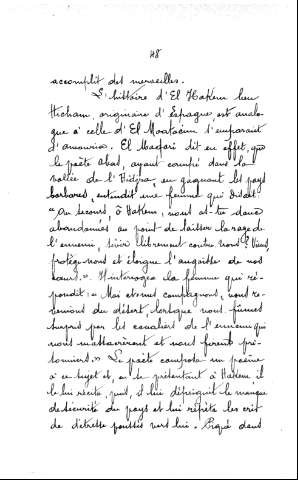 48
accomplit des merveilles.
L'histoire d'El Hakem ben
Hicham, originaire d'Espagne, est analo-
gue à celle d'El Moatacim s'emparant
d'amouria. El Maqqari dit en effet, que
le poète Abas, ayant campé dans la
vallée de l'Hidjra, en gagnant les pays
barbares, entendit une femme qui disait:
"Au secours, ô Hakem; nous as-tu donc
abandonnés au point de laisser la rage de
l'ennemi, librement contre nous? Viens,
protège-nous et éloigne l'angoisse de nos
cœurs.". Il interrogea la femme qui ré-
pondit: "Moi et mes compagnons, nous re-
venions du désert, lorsque nous fûmes
surpris par les cavaliers de l'ennemi qui
nous massacrèrent et nous firent pri-
sonniers." Le poète composa un poème
à ce sujet et, en le présentant à Hakem, il
le lui récita, puis, il lui dépeignit le manque
de sécurité du pays et lui répéta les cris
de détresse poussés vers lui. Piqué dans